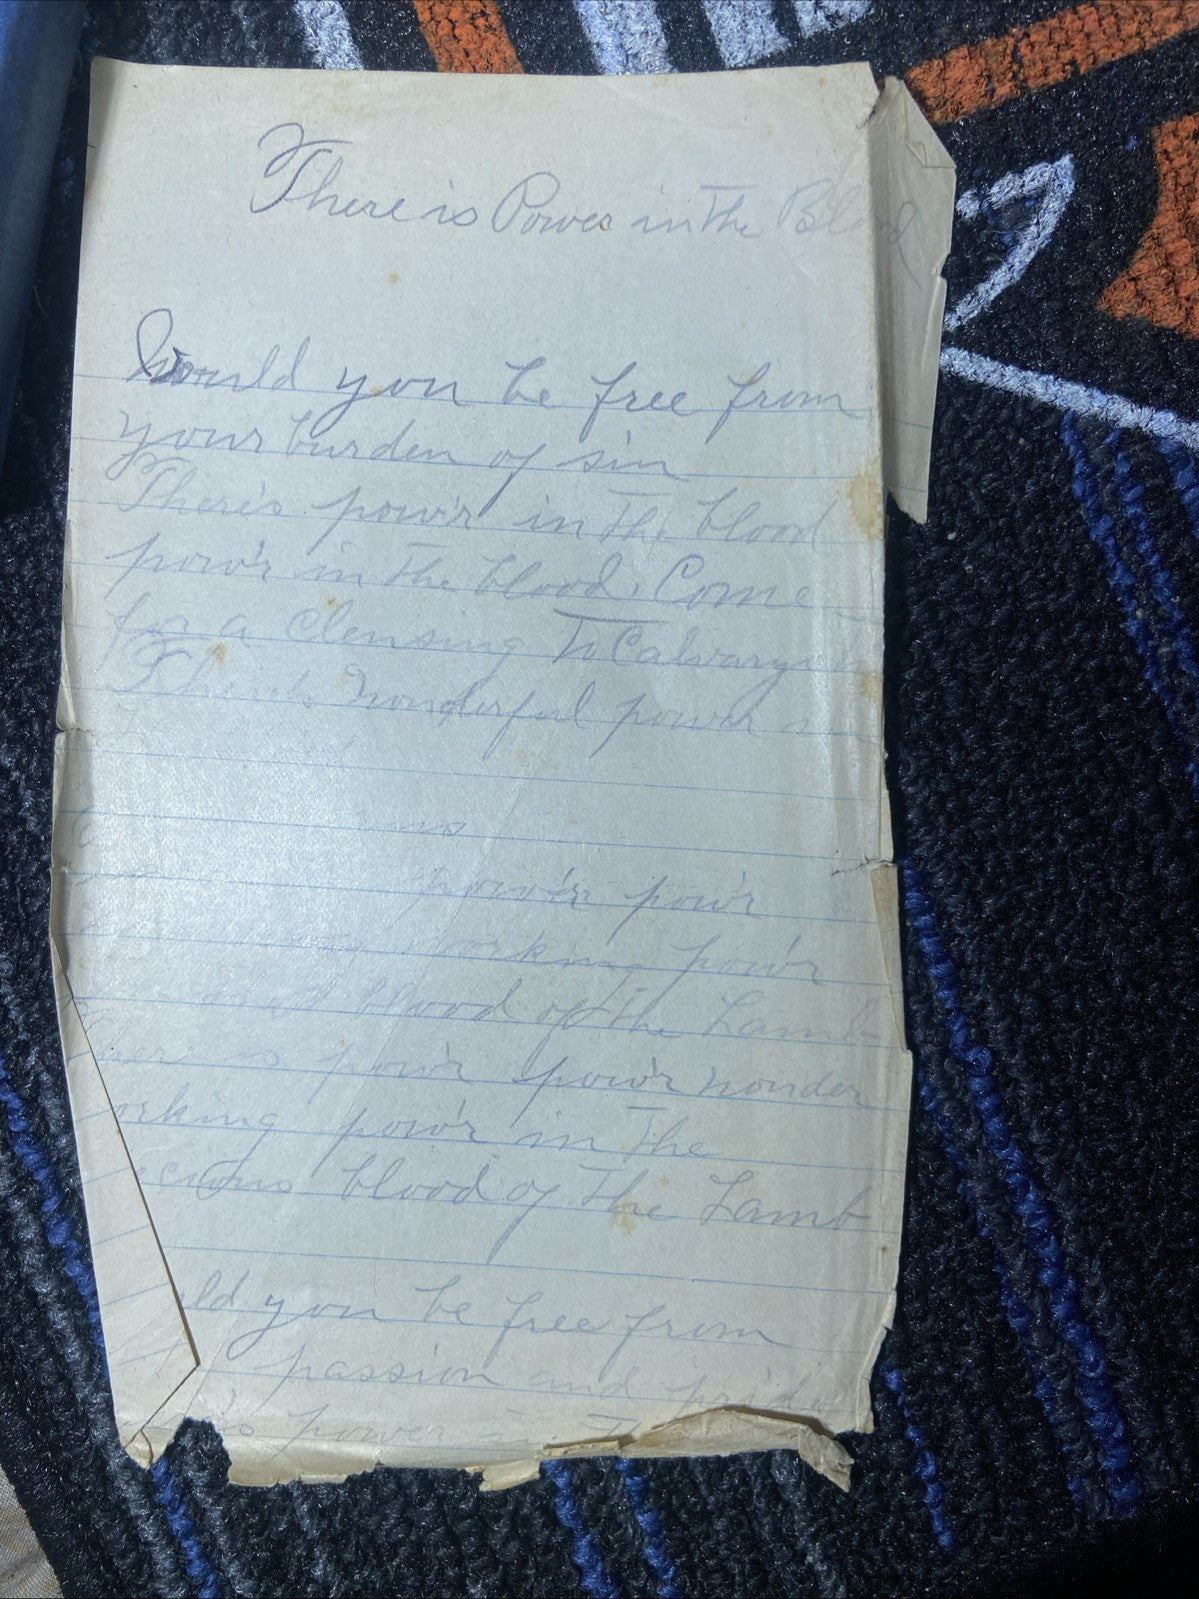 There is Power in The Blood
Would you be free from
your burden of sin
There's pow'r in The blood
pow'r in The blood. Come
for a clensing To Calvary's
There's wonderful power in
is
pow'r pow'r
working pow'r
blood of the Lamb
There is pow'r pow'r wonder
orking pow'r in The
ecious blood of The Lamb
uld you be free from
passion and pride
's power in T